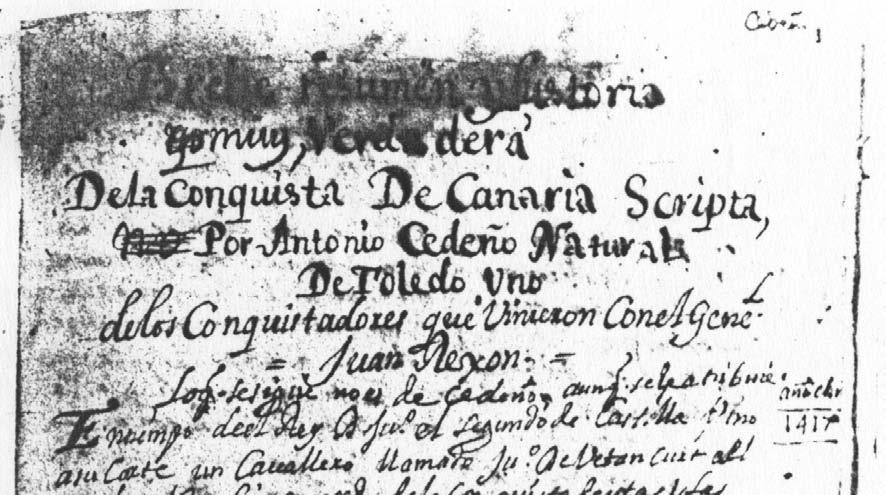 Cedeñ. 1
Breue resumen y historia
muy, Verdadera
De la Conquista De Canaria Scripta,
Por Antonio Cedeño Natural
De Toledo Vno
de los Conquistadores que Vinieron Con el Gene.l
= Juan Rexon. =
Loq. se sigue no es de Cedeño, aunq. se le atribuie.
año chr
1417
En tiempo de el Rey D Ju.o el segundo de Castilla Vino
a su Corte un Cavallero llamado Ju.o De Vetancurt